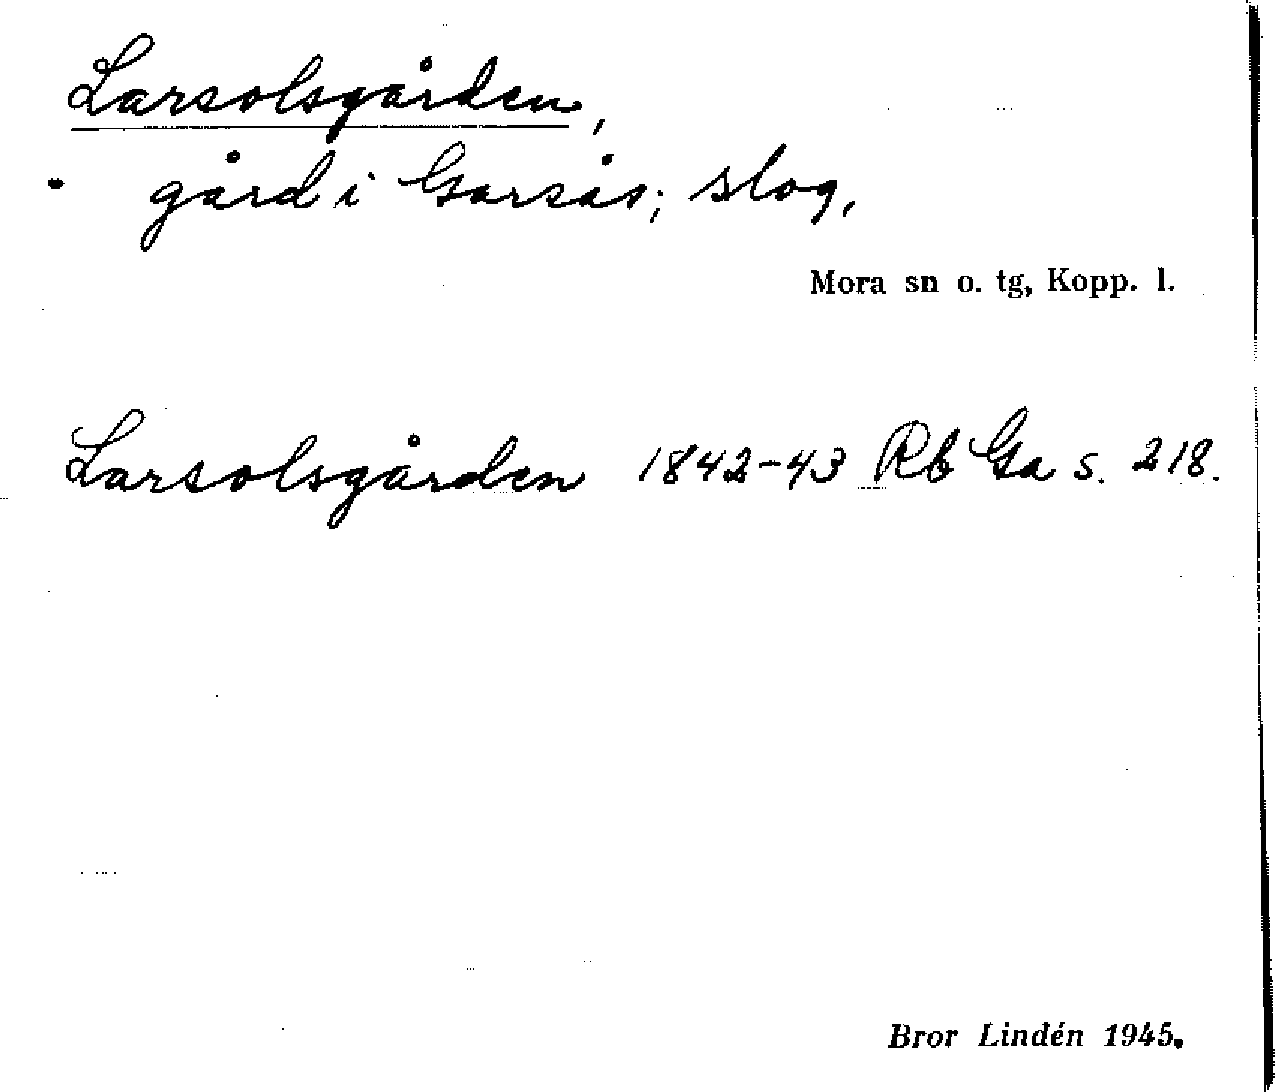 Larsolsgården,
gård i Garsås; slog,
Mora sn o. tg, Kopp. l.
Larsolsgården 1842-43 Rb Ga s. 218.
Bror Lindén 1945.